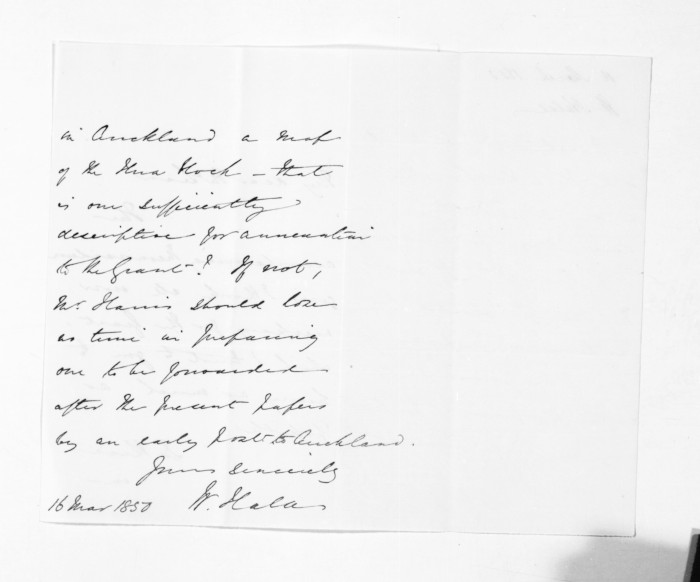 in Auckland a Map
of the Hua Block – that
is one sufficiently
descriptive for annexation
to the Grant? If not,
Mr. Harris should lose
no time in preparing
one to be forwarded
after the present papers
by an early post to Auckland.
Yours Sincerely
16 Mar 1850 W. Halse